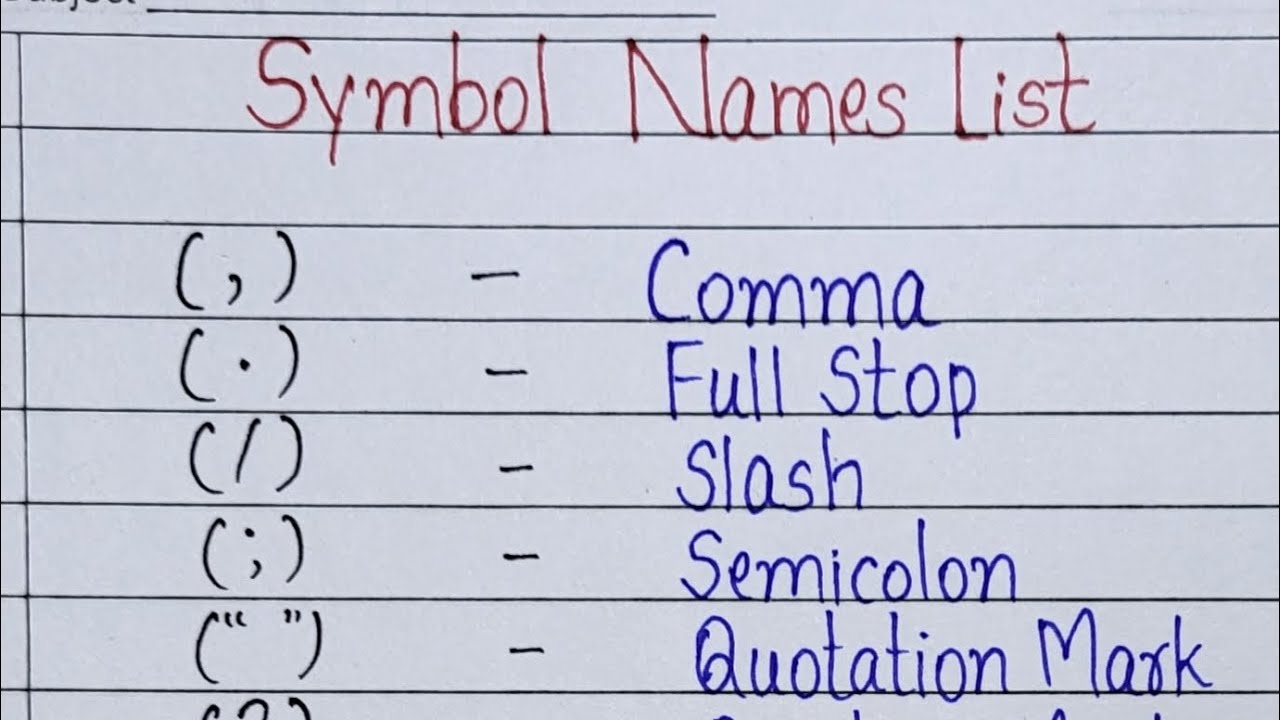 Symbol Names List
(,) - Comma
(.) - Full Stop
(/) - Slash
(;) - Semicolon
(“ ”) - Quotation Mark